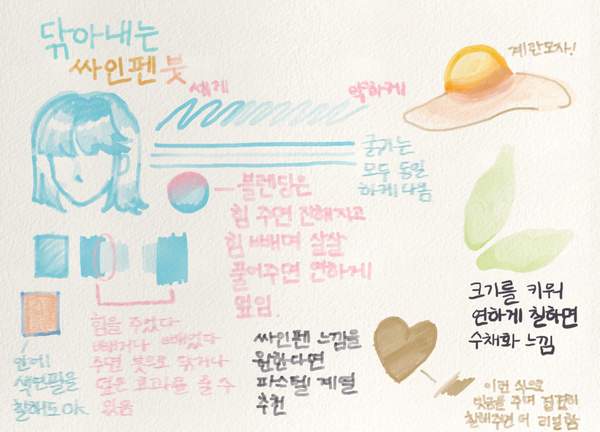 닦아내는
싸인펜 붓
세게
약하게
계란모자!
굵기는
모두 동일
하게 나옴
블렌딩은
힘 주면 진해지고
힘 빼며 살살
풀어주면 연하게
덮임.
크기를 키워
연하게 칠하면
수채화 느낌
힘을 주었다
빼거나 빼었다
주면 붓으로 닦거나
덮은 효과를 줄 수
있음
싸인펜 느낌을
원한다면
파스텔 계열
추천
언제!
색연필을
칠해도 OK
이런 식으로
힘을 주며 겹겹히
칠해주면 더 리얼함